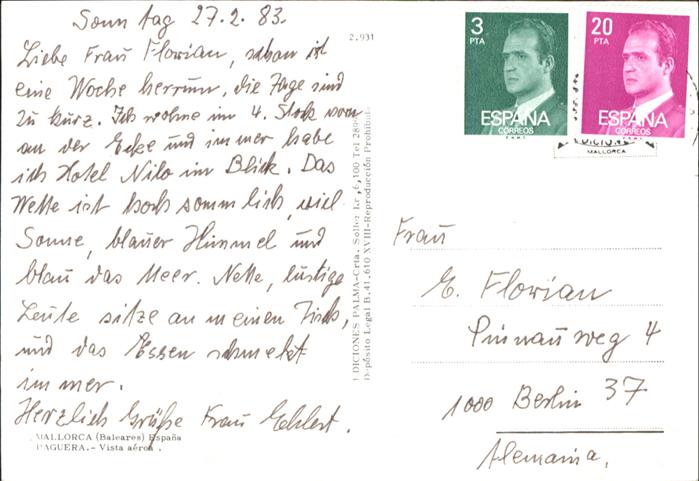 Sonntag 27.2.83.
Liebe Frau Florian, schon ist
eine Woche herrum, die Tage sind
zu kurz. Ich wohne im 4. Stock vorn
an der Ecke und immer habe
ich Hotel Nilo im Blick. Das
Wette ist hoch sommlich, viel
Sonne, blauer Himmel und
blau das Meer. Nette, lustige
Leute sitze an meinen Tisch,
und das Essen schmelzt
immer.
Herzlich Grüße Frau
MALLORCA (Baleares) España
PAGUERA.- Vista aérea.
2.931
DICIONES PALMA-Crta. Soller Kr. 6,100 Tel
Depósito Legal B. 41.610 XVIII-Reproducción Prohibid
3
PTA
ESPAÑA
CORREOS
20
PTA
ESPAÑA
CORREOS
MALLORCA
Frau
E. Florian
Pinnauweg 4
1000 Berlin 37
Alemania.